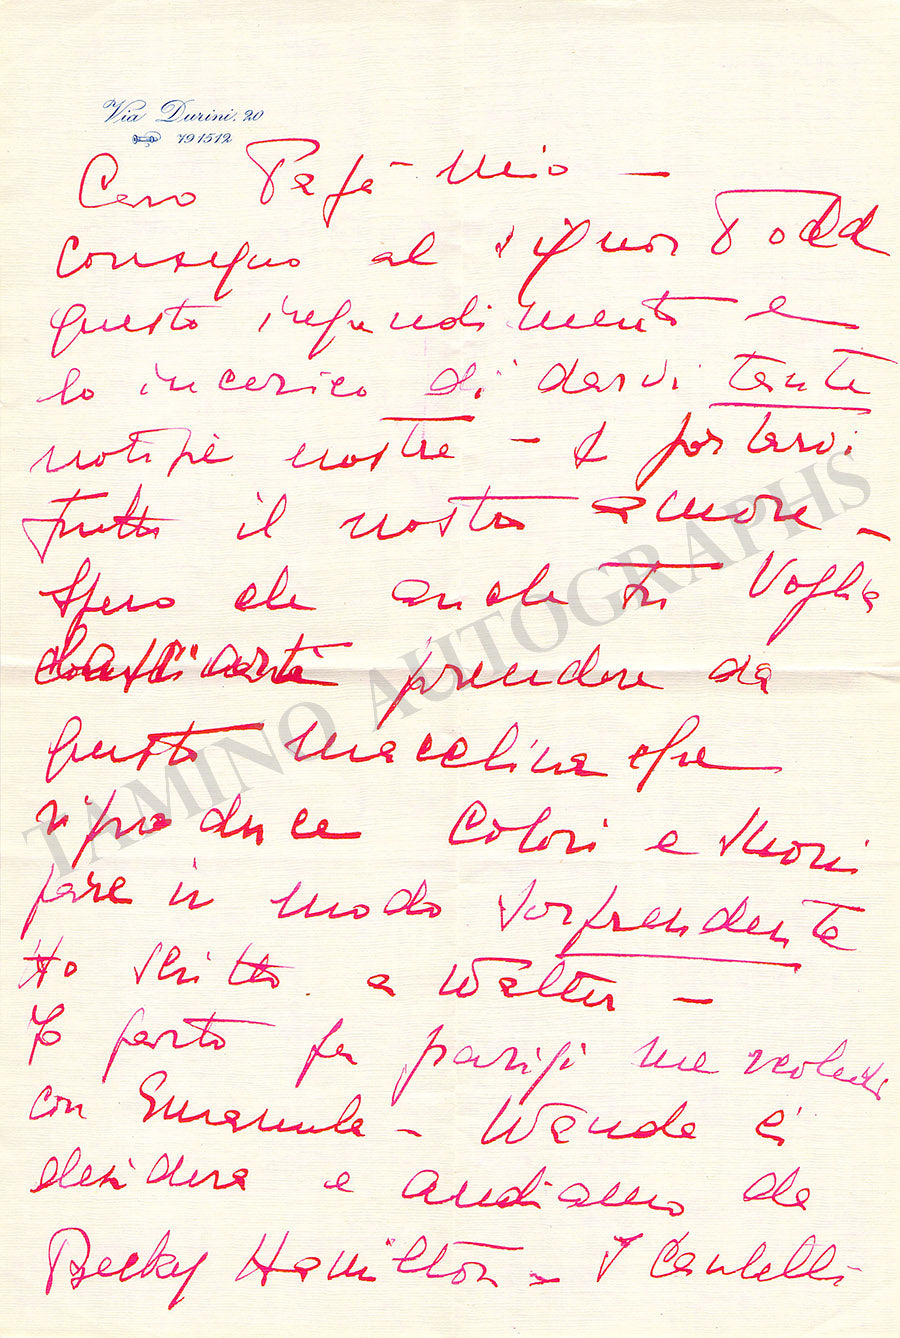 Via Durini. 20
791512
Caro Papà Mio —
consegno al signor Todd
questo impedimento e
lo incarico di darvi tante
notizie nostre — e portarvi
tutto il nostro amore —
Spero che anche tu voglia
prendere da
questa macchina che
riproduce colori e suoni
pare in modo sorprendente
Ho scritto a Walter —
Io parto per parigi mercoledì
con Emanuela — Wanda ci
desidera e andiamo da
Becky Hamilton — I Cantelli
TAMINO AUTOGRAPHS